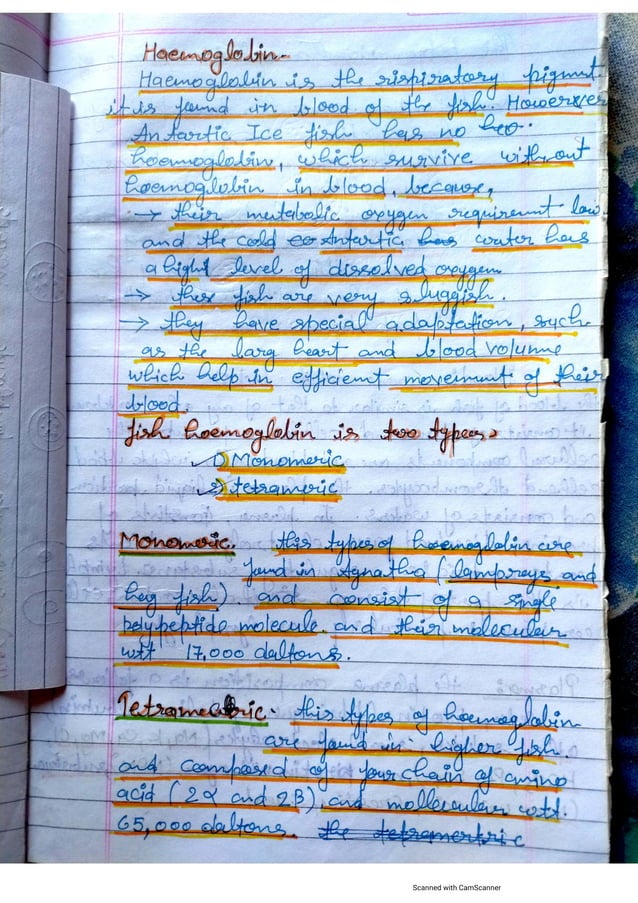 Haemoglobin-
Haemoglobin is the rispiratory pigment
it is found in blood of the fish. Howerever
Antartic Ice fish has no heo.
hoemoglobin, which survive without
hoemoglobin in blood, because,
→ their metabolic oxygen requirement low
and the cold co Antartic has water has
a hight level of dissolved oxygen
→ ther fish are very sluggish.
→ they have special adaptation, such
as the larg heart and blood volume
which help in efficient movement of their
blood.
fish hoemoglobin is two types
1) Monomeric
2) tetrameric
Monomeric. this types of hoemoglobin are
found in Agnatha (lampreys and
hag fish). and consist of a single
polypeptide molecule and their molecular
wtt 17,000 daltons.
Tetrameric. this types of hoemoglobin
are found in higher fish.
and compased of four chain of amino
acid (2α and 2B), and mollecular wtt.
65,000 daltons. the tetramertric
Scanned with CamScanner